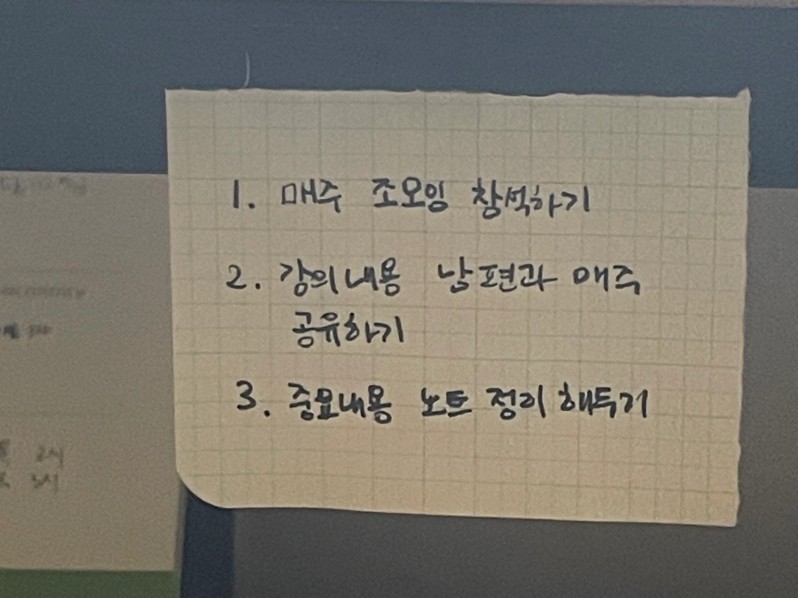 1. 매주 조모임 참석하기
2. 강의내용 남편과 매주
공유하기
3. 중요내용 노트 정리 해두기
2시
3시